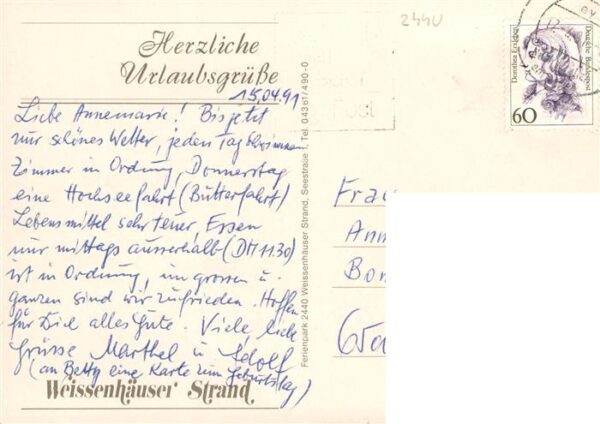 Herzliche
Urlaubsgrüße
15.04.91
Liebe Annemarie! Bis jetzt
nur schönes Wetter, jeden Tag
Zimmer in Ordnung, Donnerstag
eine Hochseefahrt (Butterfahrt)
Lebensmittel sehr teuer, Essen
nur mittags ausserhalb (DM 11.30)
ist in Ordnung, im grossen u.
ganzen sind wir zufrieden. Hoffen
für Dich alles Gute. Viele, liebe
Grüsse Marthel u. Adolf
(an Betty eine Karte zum Geburtstag)
Weissenhäuser Strand
Ferienpark 2440 Weissenhäuser Strand, Seestraße 1, Tel. 04361/490-0
2440
Dorothea Erxleben
Deutsche Bundespost
60
Frau
Ann
Bon